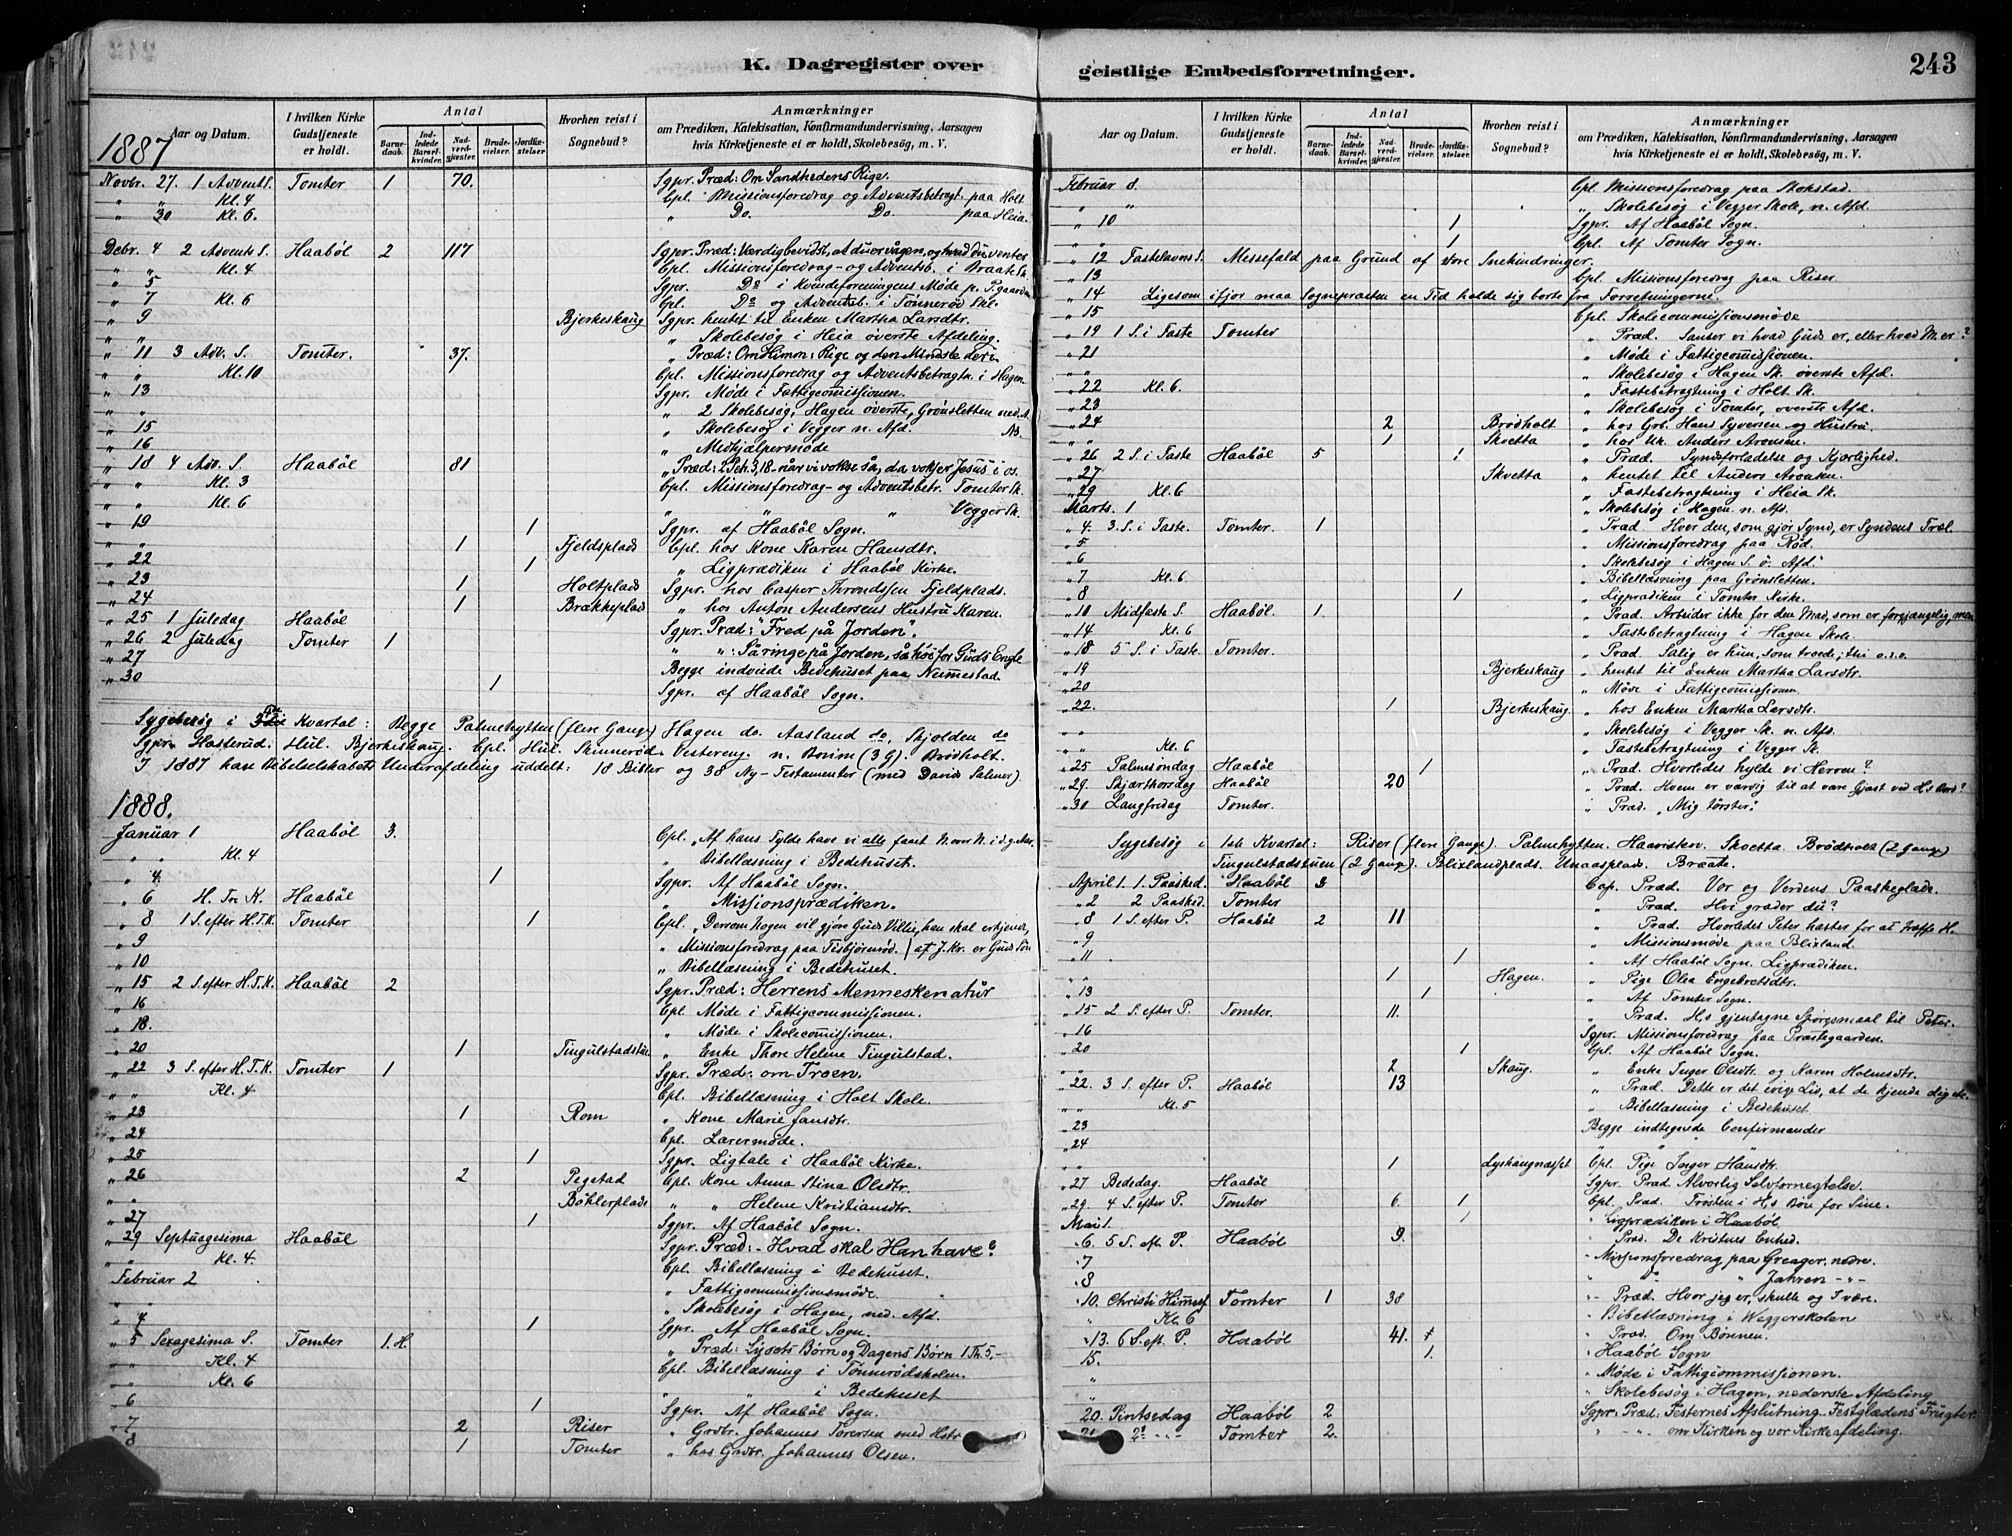 K. Dagregister over
geistlige Embedsforretninger.
243
Aar og Datum.
I hvilken Kirke Gudstjeneste er holdt.
Antal
Barnedaab.
Indledede Barselkvinder.
Nadverdgjester.
Brudevielser.
Jordfæstelser.
Hvorhen reist i Sognebud?
Anmærkninger
om Prædiken, Katekisation, Konfirmandundervisning, Aarsagen
hvis Kirketjeneste ei er holdt, Skolebesøg, m. V.
1887
Novbr. 27. 1 Advent S. Tomter 1 70. Sgpr. Præd: Om Sandhedens Rige.
" " Kl. 4 Cpl. Missionsforedrag og Adventsbetragt. paa Holt
" 30 Kl. 6. " Do. Do. paa Heia.
Debr. 4 2 Advents S. Haabøl 2 117 Sgpr. Præd: Værdigbevidst, at du er vågen, og hvad du venter
" " Kl. 4 Cpl. Missionsforedrag- og Adventsb. i Braate Sk.
" 5 Sgpr. Do i Kvindeforeningens Møde p. P.gaarden
" 7 Kl. 6 Cpl. Do og Adventsb. i Tønnerød Skl.
" 9 Bjerkeskaug Sgpr. hentet til Enken Martha Larsdtr.
" " " Skolebesøg i Heia øverste Afdeling.
" 11 3 Adv. S. Tomter. 37. " Præd: Om Himm. Rige og den Mindste deri
" " Kl. 10 Cpl. Missionsforedrag og Adventsbetragtn. i Hagen
" 13 Sgpr. Møde i Fattigcomissionen.
" " " 2 Skolebesøg, Hagen øverste, Grønsletten ned. A.
" 15 " Skolebesøg i Vegger n. Afd.
" 16 " Medhjælpermøde
" 18 4 Adv. S. Haabøl 81 " Præd: 2 Pet. 3, 18 - når vi vokse så, da vokser Jesus i os.
" " Kl. 3 Cpl. Missionsforedrag- og Adventsbetr. Tomter Sk.
" " Kl. 6 " " " Vegger Sk.
" 19 1 Sgpr. af Haabøl Sogn.
" " 1 Fjeldsplad Cpl. hos Kone Karen Hansdtr.
" 22 1 " Ligprædiken i Haabøl Kirke.
" 23 1 Holtplads Sgpr. hos Casper Throndsen Fjeldplads.
" 24 1 Brækkeplads " hos Anton Andersens Hustru Karen.
" 25 1 Juledag Haabøl Sgpr. Præd: "Fred på Jorden".
" 26 2 Juledag Tomter 1 " ": Så ringe på Jorden, så høi for Guds Engle
" 27 Begge indviede Bedehuset paa Nummestad.
" 30 1 Sgpr. af Haabøl Sogn.
Sygebesøg i Kvartal: Begge Palmehytten (flere Gange) Hagen do. Aasland do, Skjolden do
Sgpr. Hasterud. Hul. Bjerkeskaug. Cpl. Hul. Skinnerød. Vestereng. n. Brim (3 G). Brødholt.
I 1887 have Bibelselskabets Underafdeling uddelt: 18 Bibler og 38 Ny-Testamenter (med Davids Salmer).
1888.
Januar 1 Haabøl 3. Cpl. "Af hans Fylde have vi alle faaet N. over N. i d. g. Aar.
" " Kl. 4 " Bibellæsning i Bedehuset.
" 4. 1 Sgpr. Af Haabøl Sogn.
" 6 H. Tre K. Haabøl " Missionsprædiken.
" 8 1 S. efter H.T.K. Tomter 1 Cpl. "Dersom Nogen vil gjøre Guds Villie, han skal erkjende,
" 9 " Missionsforedrag paa Tisbjørnrød. / at J. Kr. er Guds Søn
" 10 " Bibellæsning i Bedehuset.
" 15 2 S. efter H.T.K. Haabøl 2 Sgpr. Præd: Herrens Menneskenatur
" 16 Cpl. Møde i Fattigcommissionen.
" 18. " Møde i Skolecomissionen.
" 20 1 Tingulstadstuen " Enke Thore Helene Tingulstad.
" 22 3 S. efter H.T.K. Tomter 1 Sgpr. Præd: om Troen.
" " Kl. 4 Cpl. Bibellæsning i Holt Skole.
" 23 1 Rom " Kone Marie Jansdtr.
" 24 Cpl. Lærermøde.
" 25 1 Sgpr. Ligtale i Haabøl Kirke.
" 26 2 Pegstad Cpl. Kone Anna Stina Olsdtr.
" " Bøhlerplads " " Helene Kristiansdtr.
" 27 1 Sgpr. Af Haabøl Sogn.
" 29 Septuagesima Haabøl Sgpr. Præd: - Hvad skal Han have?
" " Kl. 4. Cpl. Bibellæsning i Bedehuset.
Februar 2 " Fattigcommissionsmøde.
" " " Skolebesøg i Hagen, ned. Afd.
" 4 1 Sgpr. Af Haabøl Sogn.
" 5 Sexagesima S. Tomter 1.H. " Præd: Lysets Børn og Dagens Børn 1 Th. 5,-
" " Kl. 4 Cpl. Bibellæsning i Tønnerødskolen.
" " Kl. 6 " " i Bedehuset
" 6 1 Sgpr. Af Haabøl Sogn.
" 7 2 Riser " Grdbr. Johannes Torersen med Hstr
" 8 1 Tomter " hos Grdbr. Johannes Olsen.
Aar og Datum.
I hvilken Kirke Gudstjeneste er holdt.
Antal
Barnedaab.
Indledede Barselkvinder.
Nadverdgjester.
Brudevielser.
Jordfæstelser.
Hvorhen reist i Sognebud?
Anmærkninger
om Prædiken, Katekisation, Konfirmandundervisning, Aarsagen
hvis Kirketjeneste ei er holdt, Skolebesøg, m. V.
Februar 8. Cpl. Missionsforedrag paa Stokstad.
" " " Skolebesøg i Vegger Skole, n. Afd.
" 10 1 Sgpr. Af Haabøl Sogn.
" " 1 Cpl. Af Tomter Sogn.
" 12 Fastelavns S. Messefald paa Grund af store Snehindringer.
" 13 Cpl. Missionsforedrag paa Riser.
" 14 Ligesom ifjor maa Sognepresten en Tid holde sig borte fra Forretningerne.
" 15 Cpl. Skolecommissionsmøde
" 19 1 S. i Faste Tomter " Præd. Sanser vi hvad Guds er, eller hvad M. er?
" 21 " Møde i Fattigcomissionen.
" " " Skolebesøg i Hagen Sk. øverste Afd.
" 22 Kl. 6. " Fastebetragtning i Holt Sk.
" 23 " Skolebesøg i Tomter, øverste Afd.
" 24 2 Brødholt " hos Grb. Hans Syversen og Hustru.
" " 1 Skvetta " hos Uk. Anders Aronsen.
" 26 2 S. i Faste Haabøl 5 1 " Præd. Syndsforladelse og Kjærlighed.
" 27 Skvetta " hentet til Anders Aronsen.
" 29 Kl. 6 " Fastebetragtning i Heia Sk.
Marts. 1 " Skolebesøg i Hagen n. Afd.
" 4. 3. S. i Faste Tomter. 1 " Præd. Hver den, som gjør Synd, er Syndens Træl.
" 5 " Missionsforedrag paa Rød.
" 6 " Skolebesøg i Hagen S. ø. Afd.
" 7 Kl. 6 " Bibellæsning paa Grønsletten.
" 8 1 " Ligprædiken i Tomter Kirke.
" 10 Midfaste S. Haabøl. 1. " Præd. Arbeider ikke for den Mad, som er forgjængelig, men
" 14 Kl. 6 " Fastebetragtning i Hagen Skole.
" 18 5 S. i Faste Tomter. " Præd. Salig er hun, som troede; thi o.s.v.
" 19 Bjerkeskaug " hentet til Enken Martha Larsdtr.
" 20 " Møde i Fattigcomissionen
" 22. 1 Bjerkeskaug " hos Enken Martha Larsdtr.
" " " Skolebesøg i Vegger Sk. n. Afd.
" " Kl. 6 " Fastebetragtning i Vegger Sk.
" 25 Palmesøndag Haabøl 1 " Præd. Hvorledes hylde vi Herren?
" 29. Skjærthorsdag Haabøl 20 " Præd. Hvem er værdig til at være Gjæst ved H.s Bord?
" 30 Langfredag Tomter. " Præd. "Mig tørster".
Sygebesøg i 1ste Kvartal: Riser (flere Gange). Palmehytten. Haavisten. Skvetta. Brødholt (2 Gange)
Tingulstadstuen (2 Gange). Blixlandplads. Unaasplads. Braate.
April 1. 1. Paasked. Haabøl 3 Cap. Præd. Vor og Verdens Paaskeglæde.
" 2 2 Paasked. Tomter " Præd. Hvi græder du?
" 8 1 S. efter P. Haabøl 2 11 " Præd. Hvorledes Peter haster for at træffe H.
" 9 " Missionsmøde paa Blixland.
" 11 1 " Af Haabøl Sogn. Ligprædiken.
1 Hagen. " Pige Olea Engebretsdtr.
" 13 1 " Af Tomter Sogn.
" 15 2 S. efter P. Tomter. 11. " Præd. H.s gjentagne Spørgsmaal til Peter.
" 16 Sgpr. Missionsforedrag paa Præstegaarden.
" 20 1 Cpl. Af Haabøl Sogn.
" " 2 Skaug. " Enke Inger Olsdtr. og Karen Holmsdtr.
" 22. 3 S. efter P. Haabøl 13 " Præd. Dette er det evige Liv, at de kjende dig etc.
" " Kl. 5 " Bibellæsning i Bedehuset.
" 23 Begge indtegnede Confirmander
" 24 " "
" " 1 Lyshaugnæsset Cpl. Pige Inger Hansdtr.
" 27 Bededag. Haabøl Sgpr. Præd. Alvorlig Selvfornegtelse.
" 29. 4 S. efter P. Tomter 6. 1 Cpl. Præd. Trøsten i H.s Bøn for Sine.
Mai 1. 1 " Ligprædiken i Haabøl
" 6. 5 S. eft. P. Haabøl 9. " Præd. De Kristnes Enhed.
" 7 " Missionsforedrag paa Greager, nedre.
" 8 " Do " Jahren - " -
" 10. Christi Himmelf. Tomter 1 38 " Præd. Hvor jeg er, skulle og I være.
" Kl. 6 " Bibellæsning i Veggerskolen
" 13. 6 S. eft. P. Haabøl 41. " Præd. Om Bønnen.
" 15. 1. " Haabøl Sogn
" " Møde i Fattigcommissionen.
" " Skolebesøg i Hagen, nederste Afdeling
20. Pintsedag Haabøl 2 Sgpr. Præd: Festernes Afslutning. Festglædens Frugter.
21 2. - " - Tomter 2. " - " - om Kirken og vor Kirkeafdeling.